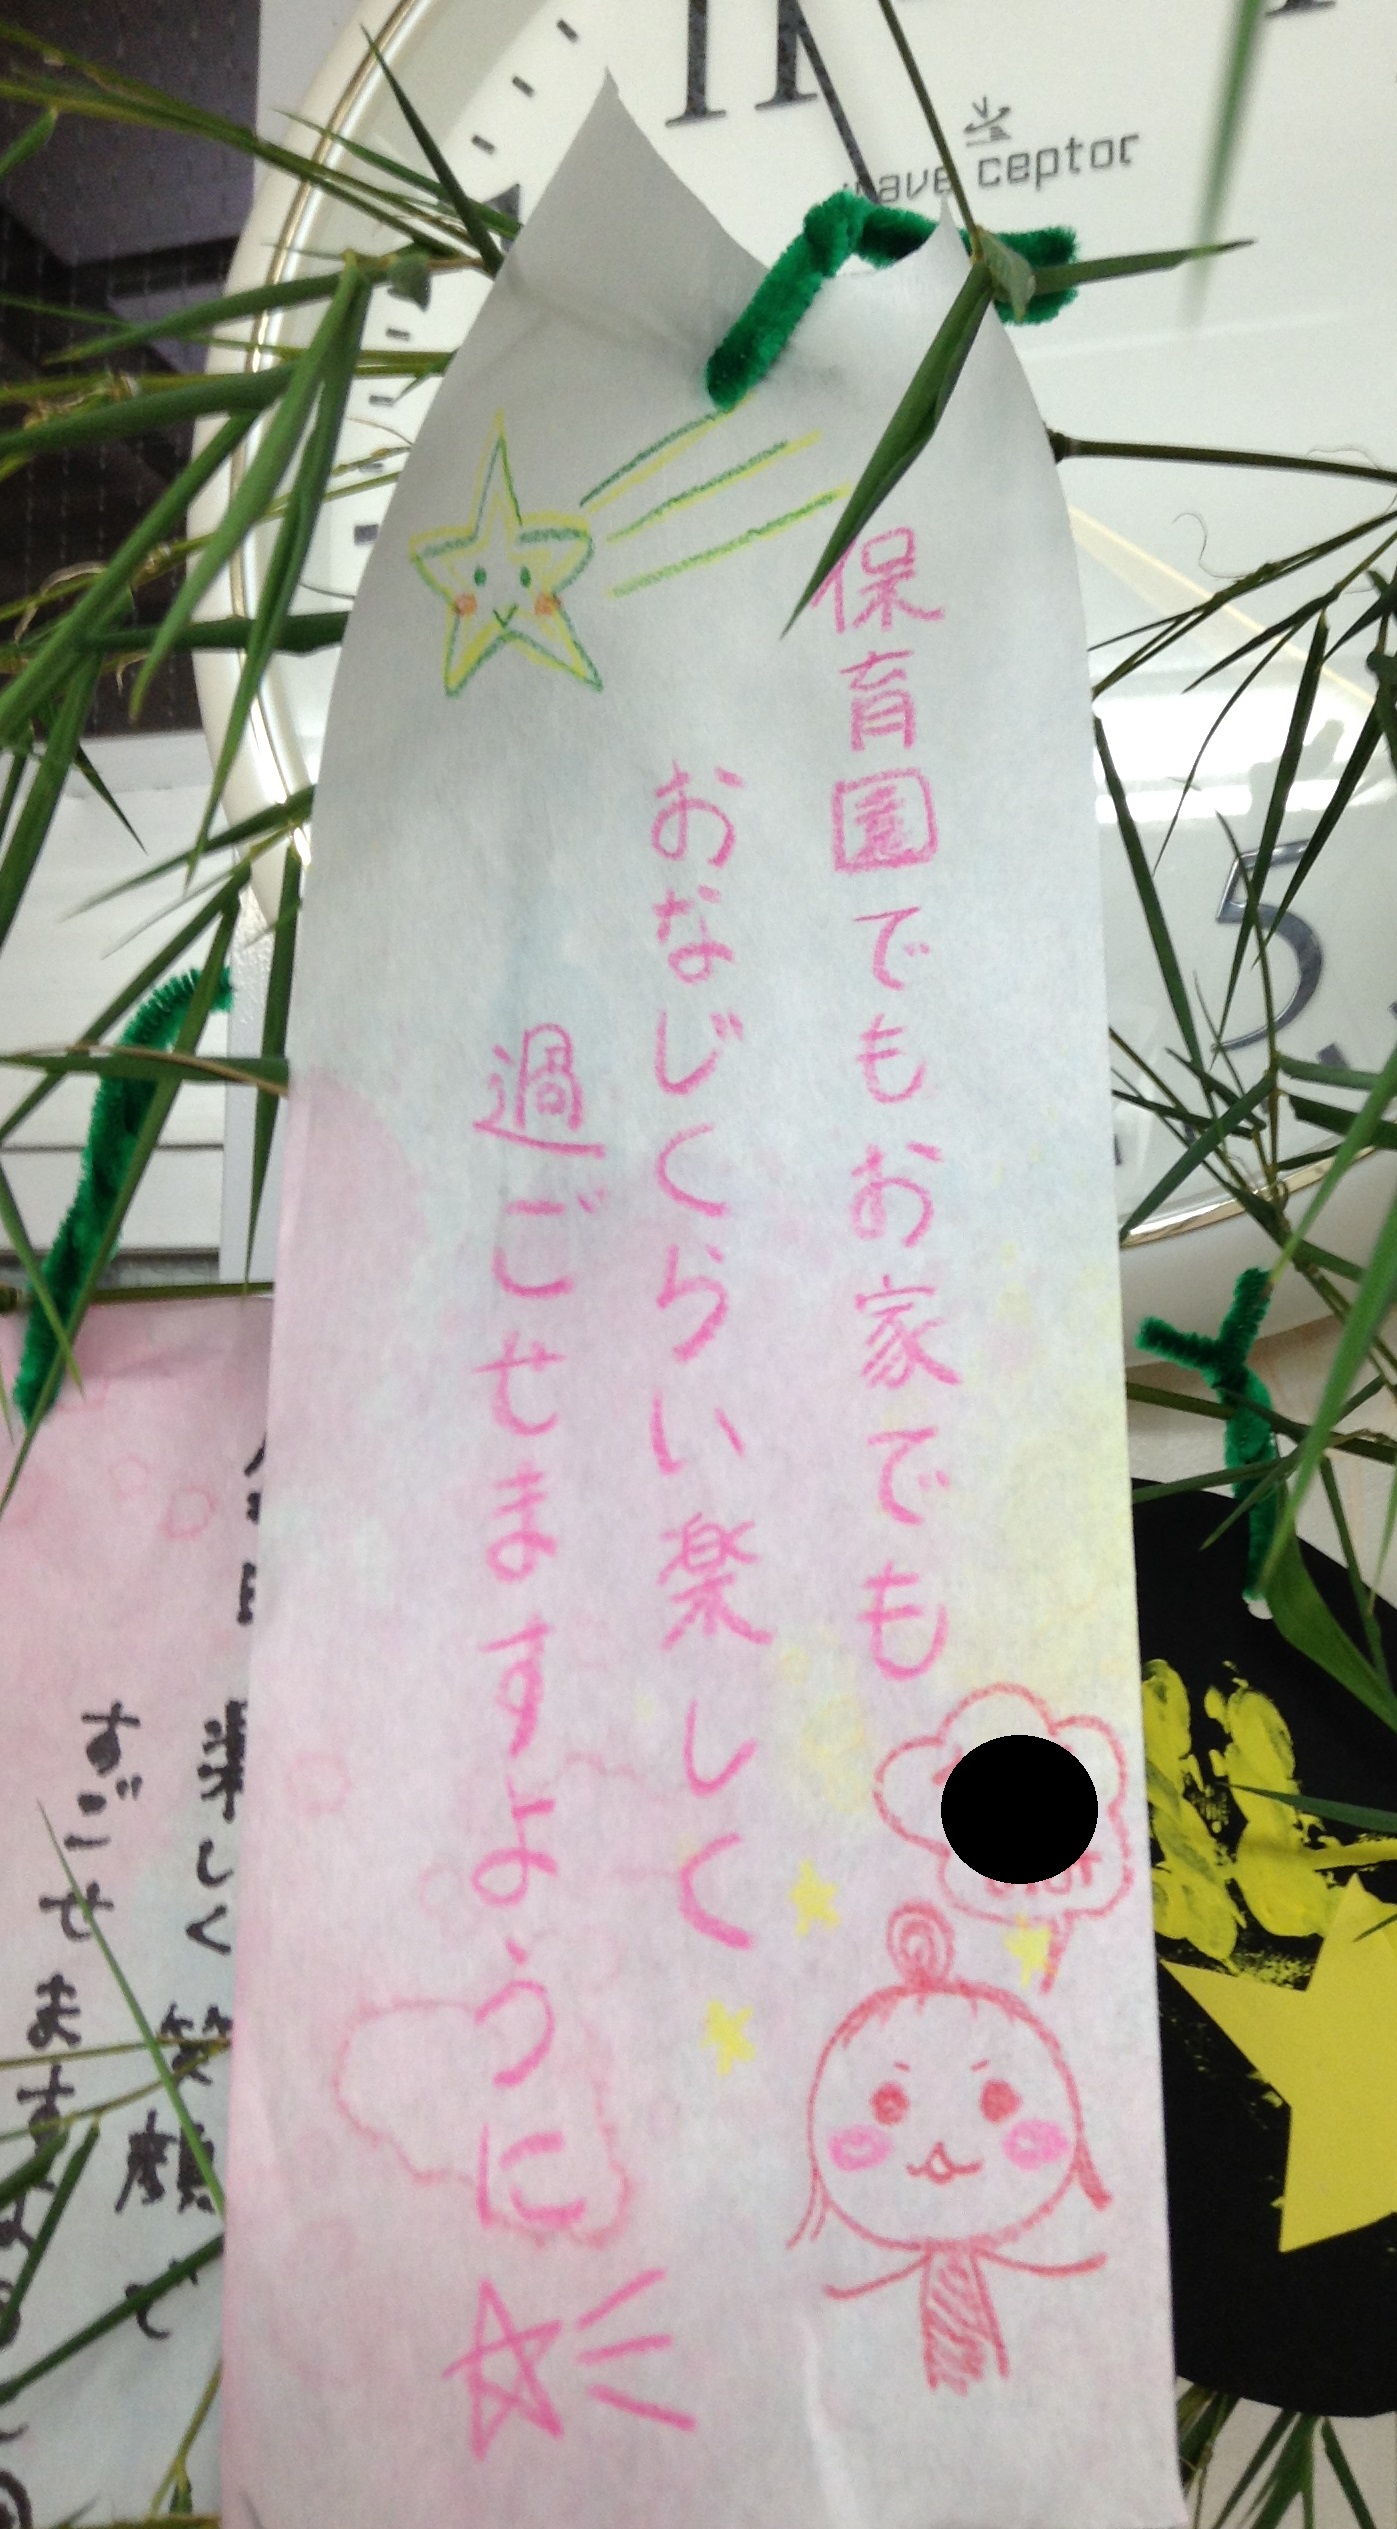 wave ceptor
5
保育園でもお家でも
おなじくらい楽しく
過ごせますすように
楽しく笑顔で
すごせます